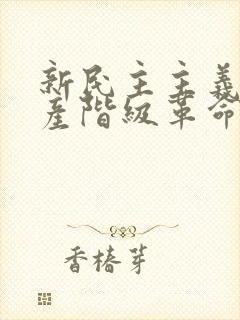 新民主主義
產階級革命
香椿芽